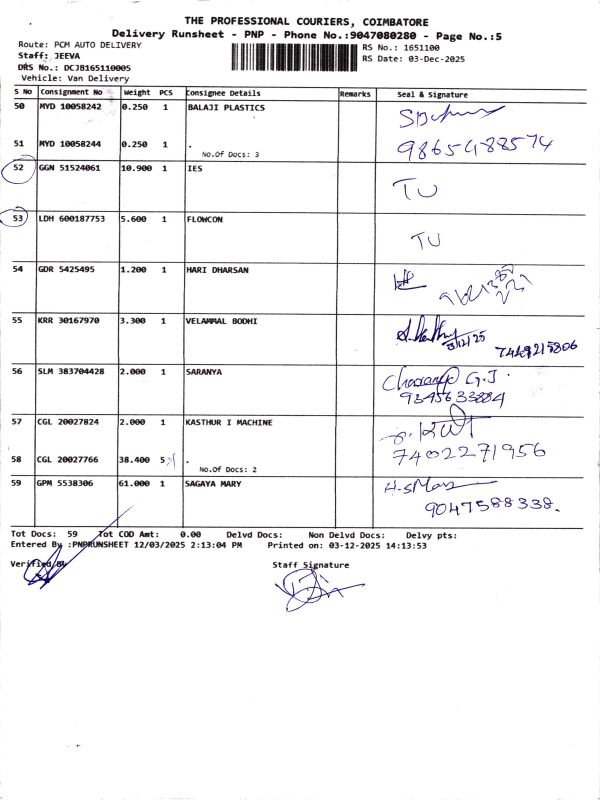 THE PROFESSIONAL COURIERS, COIMBATORE
Delivery Runsheet - PNP - Phone No.:9047080280 - Page No.:5
Route: PCM AUTO DELIVERY
RS No.: 1651100
Staff: JEEVA
RS Date: 03-Dec-2025
DRS No.: DCJB165110005
Vehicle: Van Delivery
S No Consignment No Weight PCS Consignee Details Remarks Seal & Signature
50 MYD 10058242 0.250 1 BALAJI PLASTICS
51 MYD 10058244 0.250 1 . 9865488574
No.Of Docs: 3
52 GGN 51524061 10.900 1 IES
TU
53 LDH 600187753 5.600 1 FLOWCON
TU
54 GDR 5425495 1.200 1 HARI DHARSAN
55 KRR 30167970 3.300 1 VELAMMAL BODHI
3/12/25
56 SLM 383704428 2.000 1 SARANYA
G.J.
57 CGL 20027824 2.000 1 KASTHUR I MACHINE
7402271956
58 CGL 20027766 38.400 5 .
No.Of Docs: 2
59 GPM 5538306 61.000 1 SAGAYA MARY
9047588338.
Tot Docs: 59 Tot COD Amt: 0.00 Delvd Docs: Non Delvd Docs: Delvy pts:
Entered By :PNBRUNSHEET 12/03/2025 2:13:04 PM Printed on: 03-12-2025 14:13:53
Verified By Staff Signature